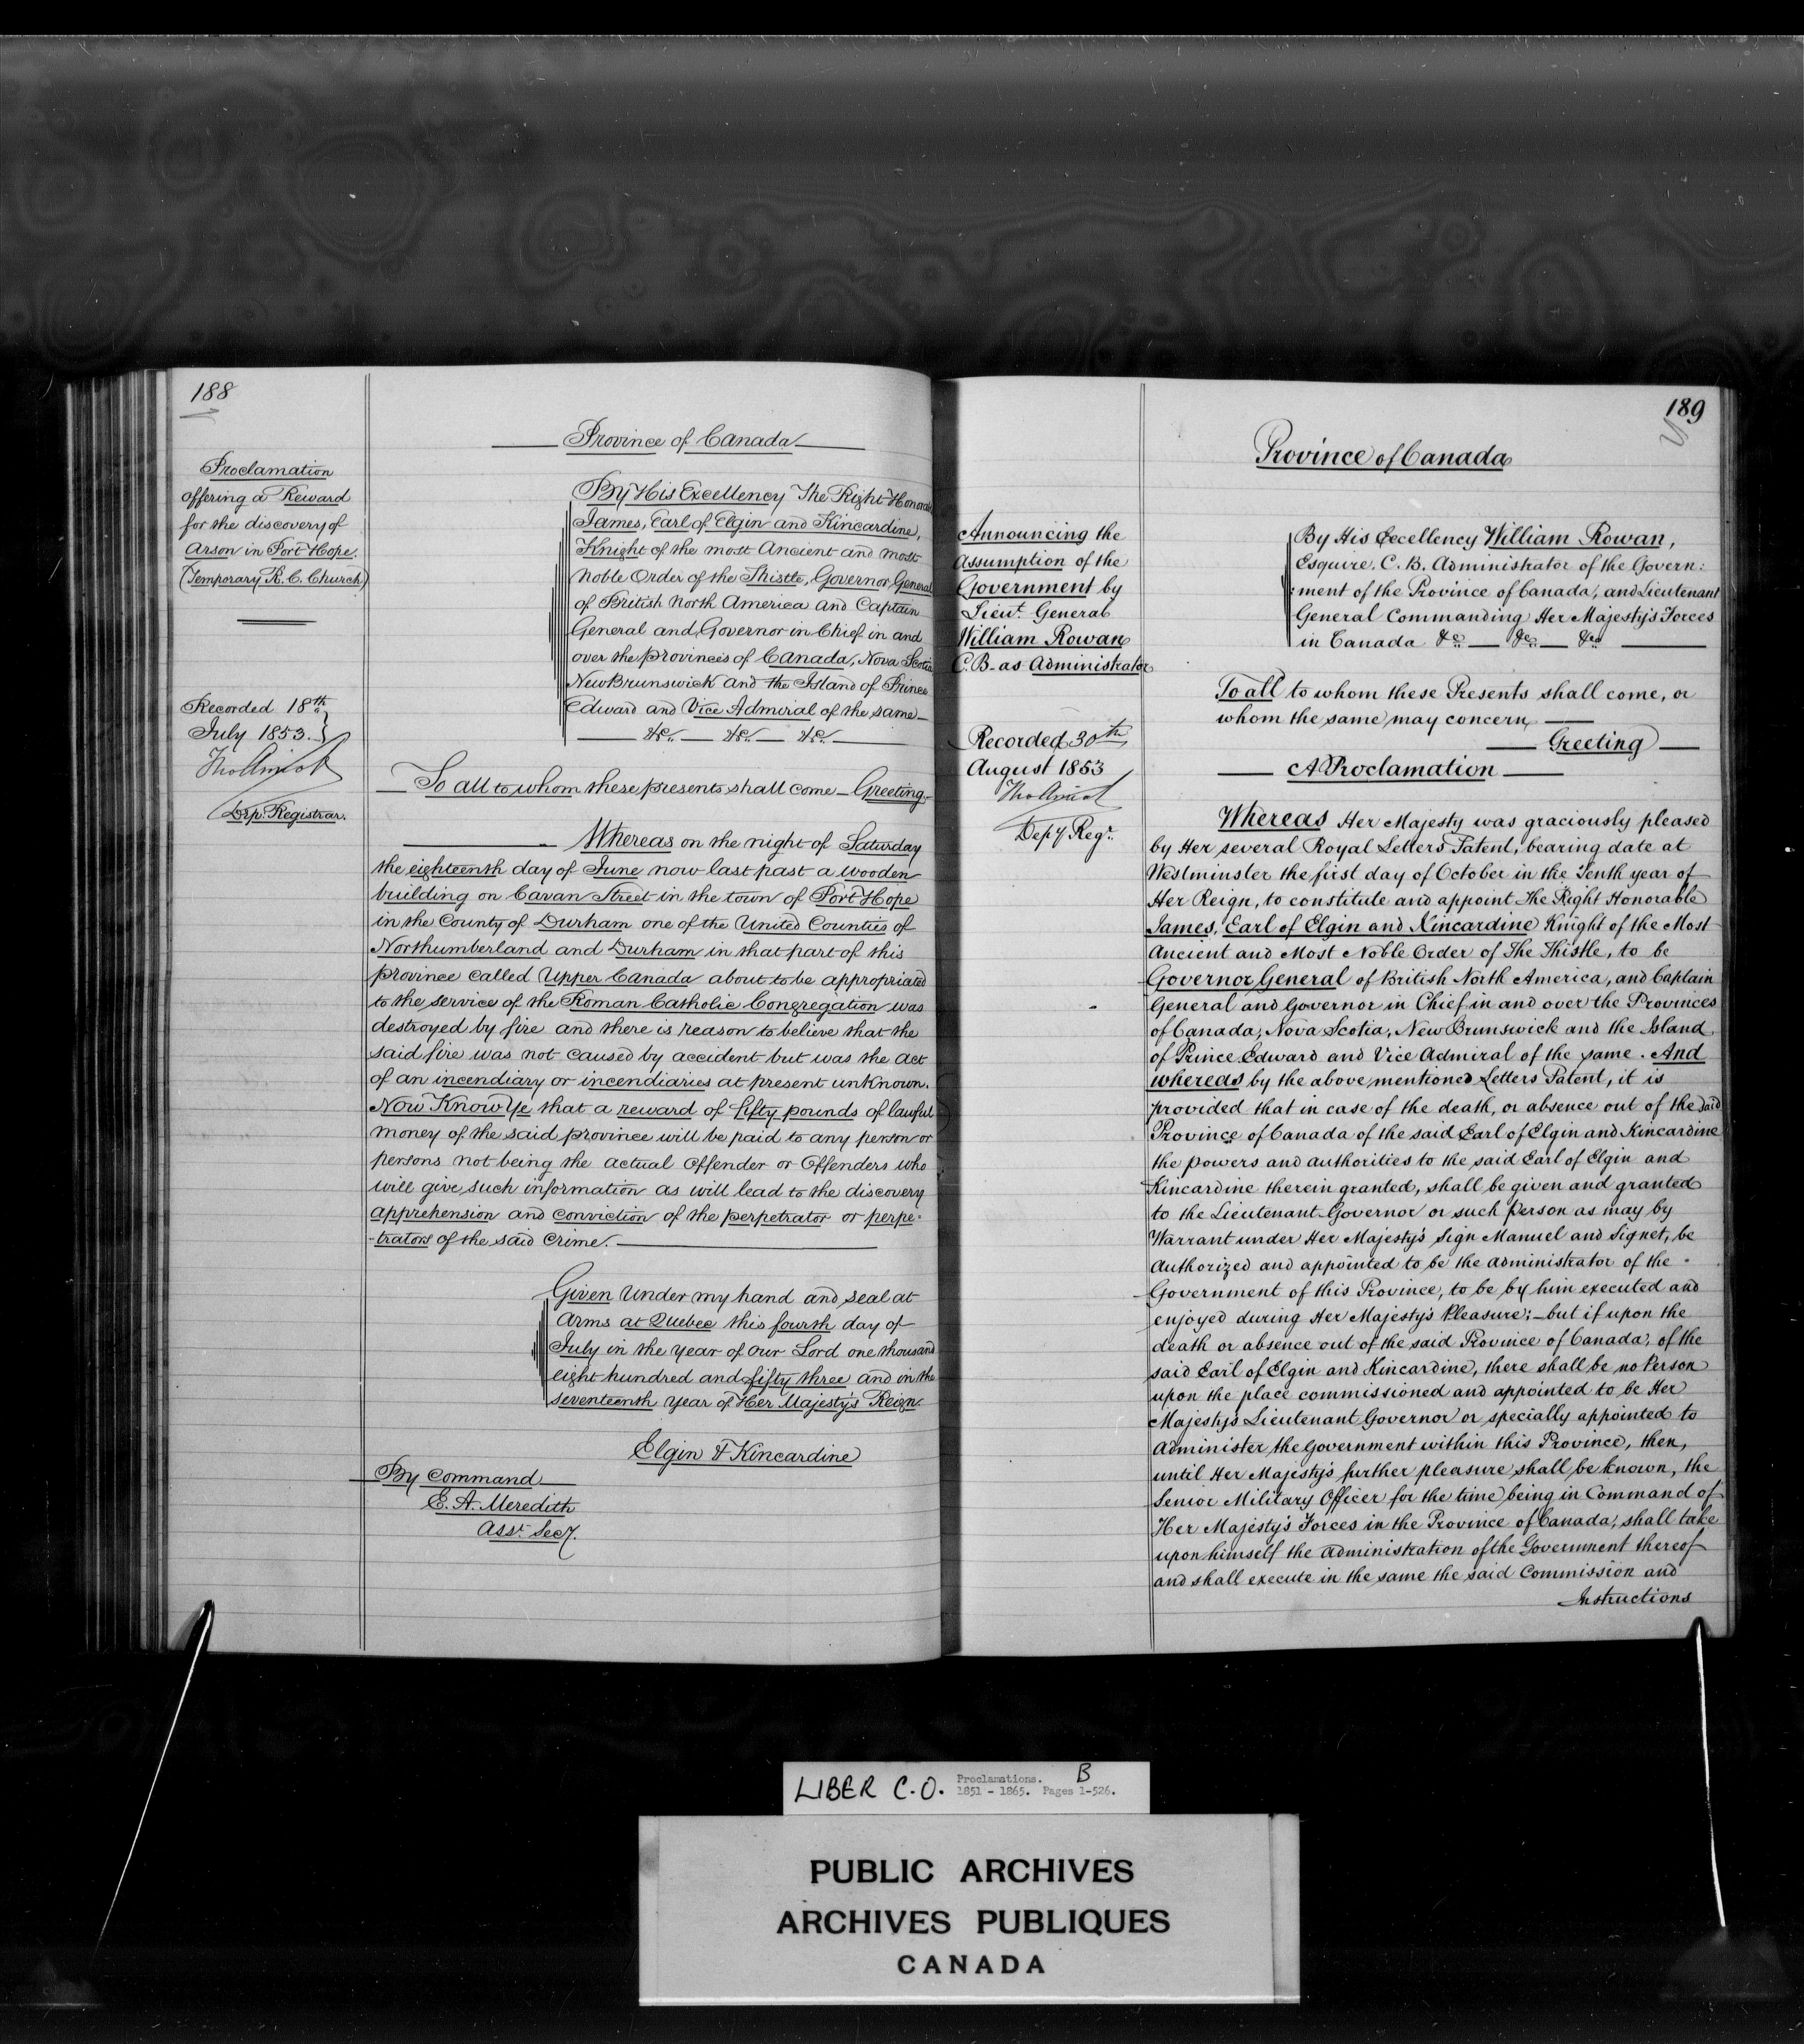 188
Proclamation
offering a Reward
for the discovery of
Arson in Port Hope.
(Temporary R. C. Church)
Recorded 18th
July 1853.}
Tho Amiot
Dep. Registrar.
Province of Canada
By His Excellency The Right Honorable
James, Earl of Elgin and Kincardine,
Knight of the most Ancient and most
Noble Order of the Thistle, Governor General
of British North America and Captain
General and Governor in Chief in and
over the provinces of Canada, Nova Scotia
New Brunswick and the Island of Prince
Edward and Vice Admiral of the same—
— &c. — &c. — &c. —
To all to whom these presents shall come — Greeting—
Whereas on the night of Saturday
the eighteenth day of June now last past a wooden
building on Cavan Street in the town of Port Hope
in the County of Durham one of the United Counties of
Northumberland and Durham in that part of this
province called Upper Canada about to be appropriated
to the service of the Roman Catholic Congregation was
destroyed by fire and there is reason to believe that the
said fire was not caused by accident but was the act
of an incendiary or incendiaries at present unknown.
Now Know Ye that a reward of fifty pounds of lawful
money of the said province will be paid to any person or
persons not being the actual offender or Offenders who
will give such information as will lead to the discovery
apprehension and conviction of the perpetrator or perpe-
-trators of the said Crime.
Given under my hand and seal at
Arms at Quebec this fourth day of
July in the year of our Lord one thousand
eight hundred and fifty three and in the
seventeenth year of Her Majesty's Reign.
Elgin & Kincardine
By Command
E. A. Meredith
Asst. Secy.
189
Announcing the
Assumption of the
Government by
Lieut. General
William Rowan
C.B. as Administrator
Recorded 30th
August 1853
Tho Amiot
Depy Regr.
Province of Canada
By His Excellency William Rowan,
Esquire, C. B. Administrator of the Govern:
:ment of the Province of Canada, and Lieutenant
General Commanding Her Majesty's Forces
in Canada &c — &c — &c
To all to whom these Presents shall come, or
whom the same may concern, —
— Greeting —
— A Proclamation —
Whereas Her Majesty was graciously pleased
by Her several Royal Letters Patent, bearing date at
Westminster the first day of October in the Tenth year of
Her Reign, to constitute and appoint The Right Honorable
James, Earl of Elgin and Kincardine Knight of the Most
Ancient and Most Noble Order of The Thistle, to be
Governor General of British North America, and Captain
General and Governor in Chief in and over the Provinces
of Canada, Nova Scotia, New Brunswick and the Island
of Prince Edward and Vice Admiral of the same. And
whereas by the above mentioned Letters Patent, it is
provided that in case of the death, or absence out of the said
Province of Canada of the said Earl of Elgin and Kincardine
the powers and authorities to the said Earl of Elgin and
Kincardine therein granted, shall be given and granted
to the Lieutenant Governor or such Person as may by
Warrant under Her Majesty's Sign Manuel and Signet, be
authorized and appointed to be the administrator of the
Government of this Province, to be by him executed and
enjoyed during Her Majesty's Pleasure; — but if upon the
death or absence out of the said Province of Canada, of the
said Earl of Elgin and Kincardine, there shall be no Person
upon the place commissioned and appointed to be Her
Majesty's Lieutenant Governor or specially appointed to
administer the Government within this Province, then,
until Her Majesty's further pleasure shall be known, the
Senior Military Officer for the time being in Command of
Her Majesty's Forces in the Province of Canada, shall take
upon himself the administration of the Government thereof
and shall execute in the same the said Commission and
Instructions
LIBER C.O. Proclamations. B
1851 - 1865. Pages 1-526.
PUBLIC ARCHIVES
ARCHIVES PUBLIQUES
CANADA